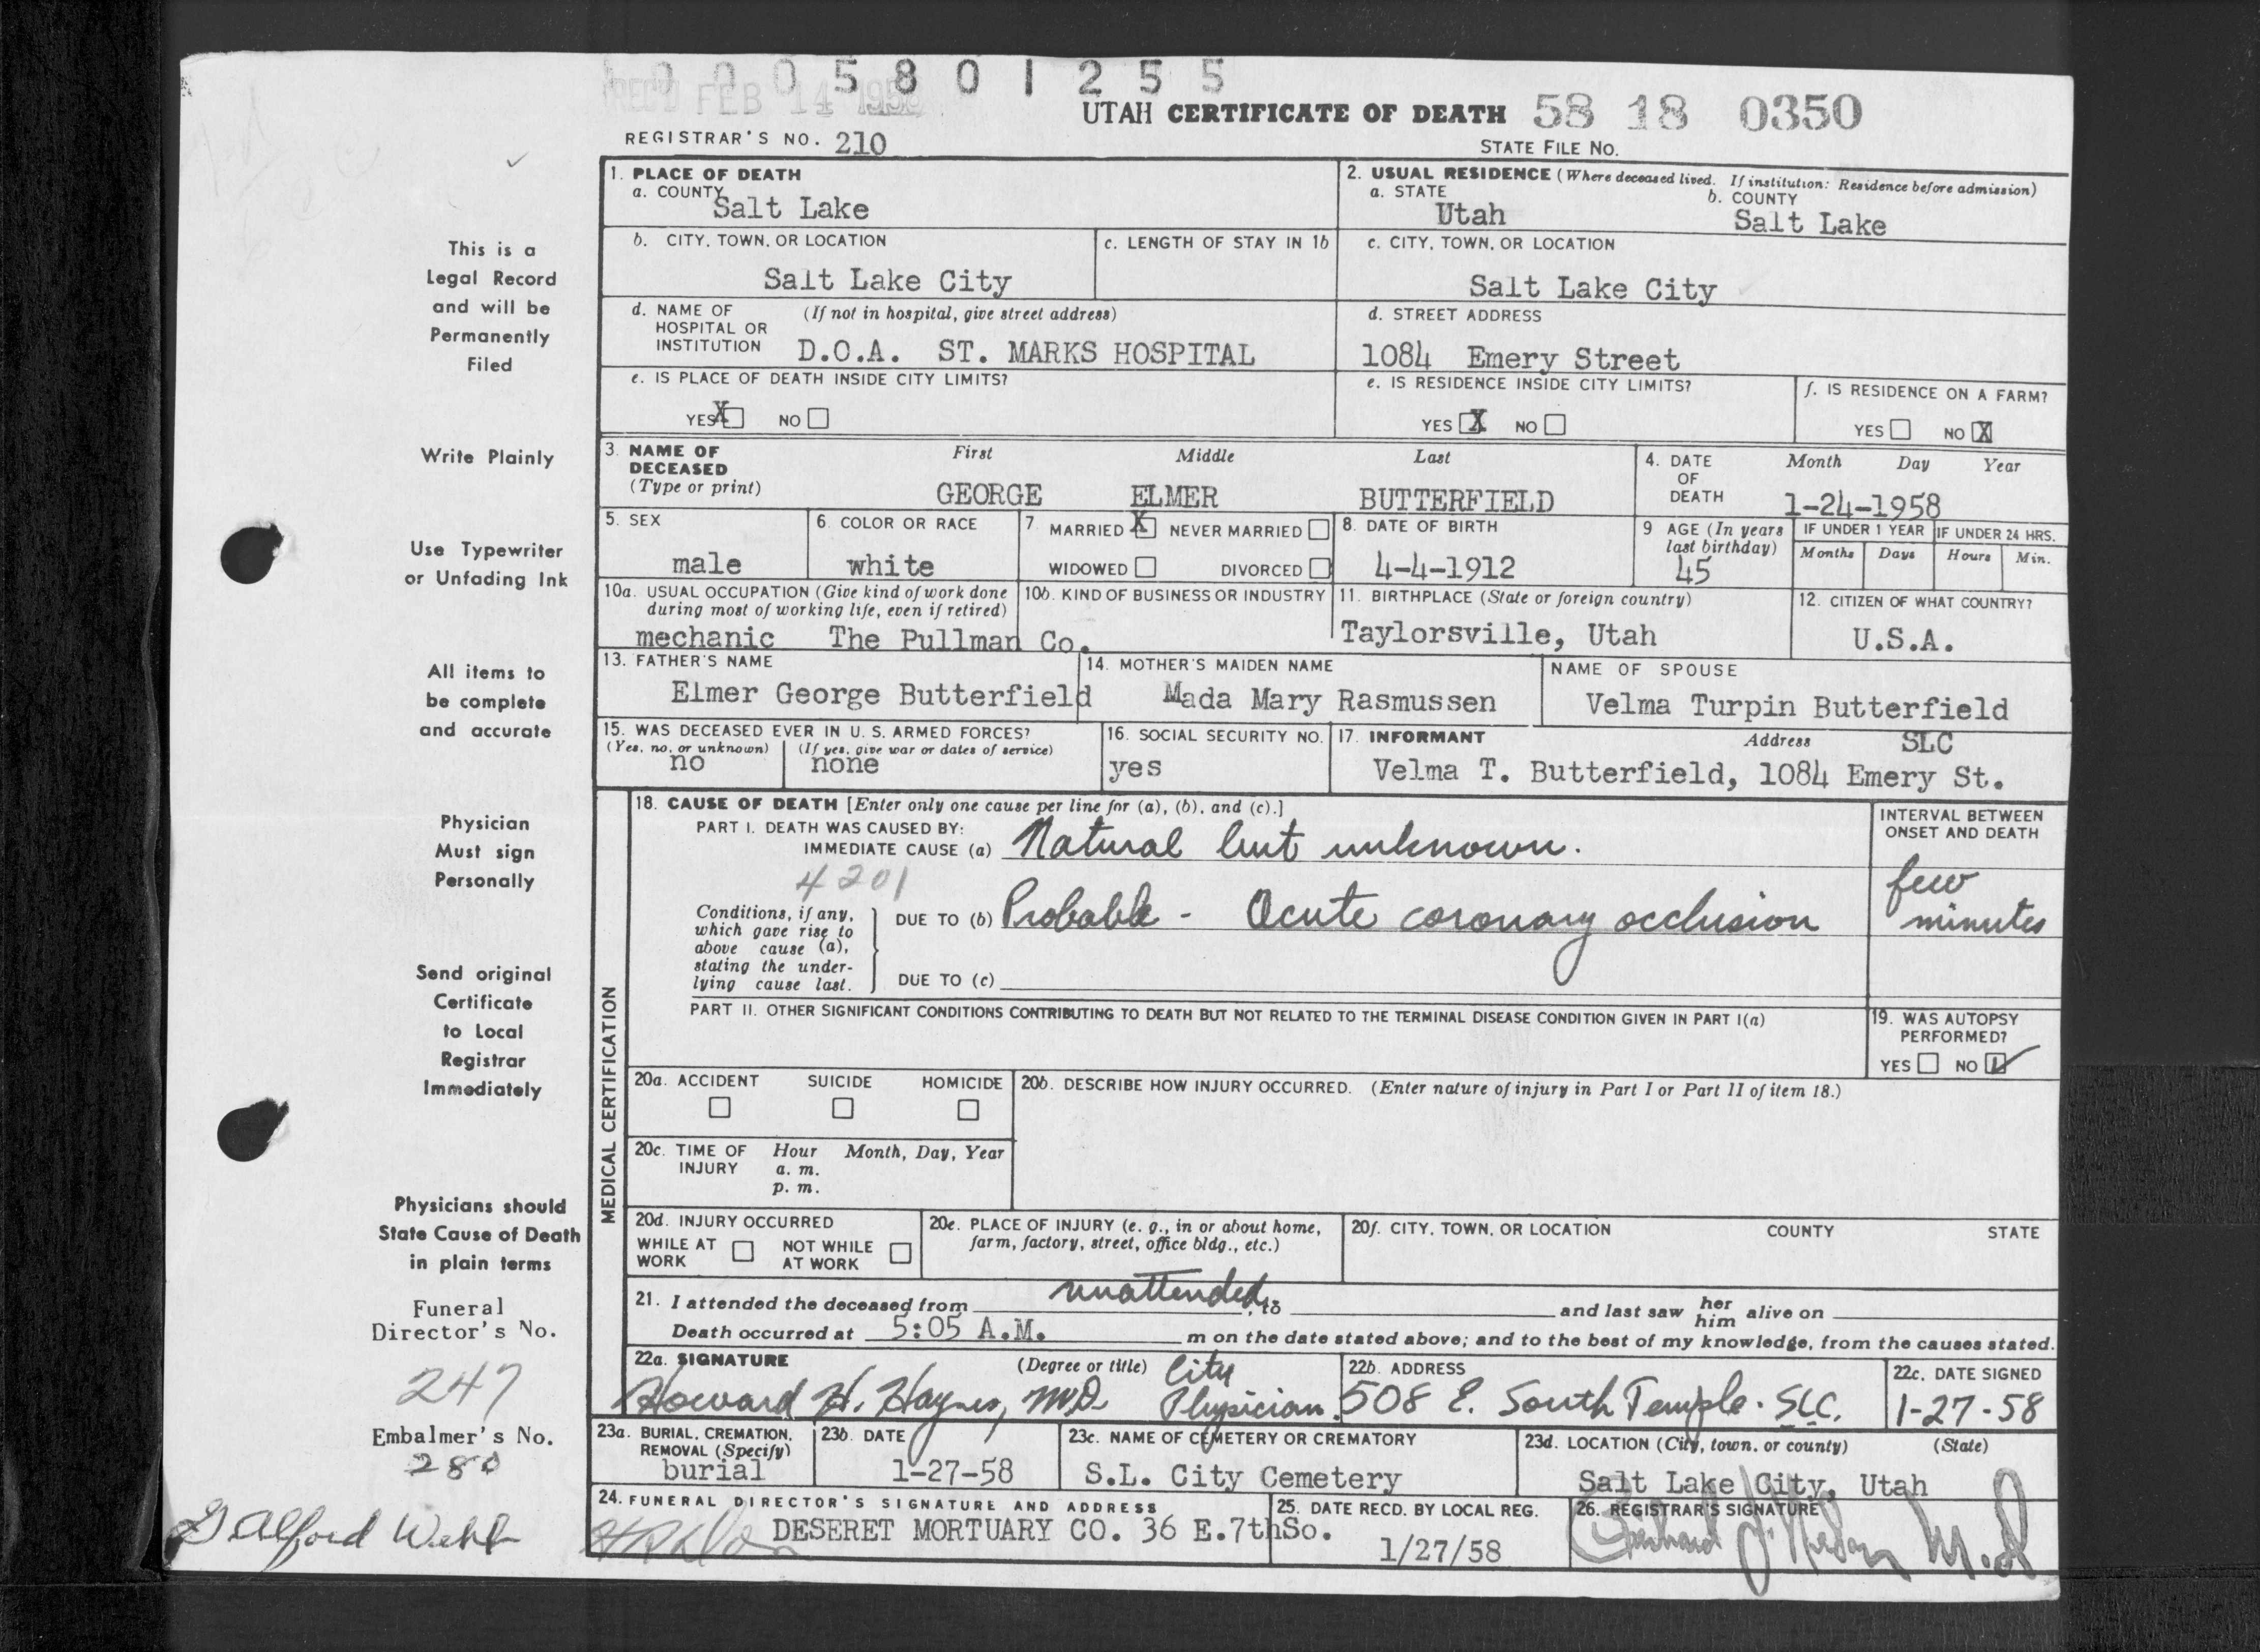 0 0 0 5 8 0 1 2 5 5
REC'D FEB 14 1958
UTAH CERTIFICATE OF DEATH 58 18 0350
REGISTRAR'S NO. 210
STATE FILE NO.
1. PLACE OF DEATH
a. COUNTY
Salt Lake
2. USUAL RESIDENCE (Where deceased lived. If institution: Residence before admission)
a. STATE
Utah
b. COUNTY
Salt Lake
b. CITY, TOWN, OR LOCATION
Salt Lake City
c. LENGTH OF STAY IN 1b
c. CITY, TOWN, OR LOCATION
Salt Lake City
d. NAME OF HOSPITAL OR INSTITUTION
(If not in hospital, give street address)
D.O.A. ST. MARKS HOSPITAL
d. STREET ADDRESS
1084 Emery Street
e. IS PLACE OF DEATH INSIDE CITY LIMITS?
YES X NO
e. IS RESIDENCE INSIDE CITY LIMITS?
YES X NO
f. IS RESIDENCE ON A FARM?
YES NO X
3. NAME OF DECEASED (Type or print)
First Middle Last
GEORGE ELMER BUTTERFIELD
4. DATE OF DEATH
Month Day Year
1-24-1958
5. SEX
male
6. COLOR OR RACE
white
7. MARRIED X NEVER MARRIED
WIDOWED DIVORCED
8. DATE OF BIRTH
4-4-1912
9 AGE (In years last birthday)
45
IF UNDER 1 YEAR
Months Days
IF UNDER 24 HRS.
Hours Min.
10a. USUAL OCCUPATION (Give kind of work done during most of working life, even if retired)
10b. KIND OF BUSINESS OR INDUSTRY
mechanic The Pullman Co.
11. BIRTHPLACE (State or foreign country)
Taylorsville, Utah
12. CITIZEN OF WHAT COUNTRY?
U.S.A.
13. FATHER'S NAME
Elmer George Butterfield
14. MOTHER'S MAIDEN NAME
Mada Mary Rasmussen
NAME OF SPOUSE
Velma Turpin Butterfield
15. WAS DECEASED EVER IN U. S. ARMED FORCES?
(Yes, no, or unknown) (If yes, give war or dates of service)
no none
16. SOCIAL SECURITY NO.
yes
17. INFORMANT Address SLC
Velma T. Butterfield, 1084 Emery St.
MEDICAL CERTIFICATION
18. CAUSE OF DEATH [Enter only one cause per line for (a), (b), and (c).]
PART I. DEATH WAS CAUSED BY:
IMMEDIATE CAUSE (a) Natural but unknown.
4201
INTERVAL BETWEEN ONSET AND DEATH
few minutes
Conditions, if any, which gave rise to above cause (a), stating the underlying cause last.
DUE TO (b) Probable - Acute coronary occlusion
DUE TO (c)
PART II. OTHER SIGNIFICANT CONDITIONS CONTRIBUTING TO DEATH BUT NOT RELATED TO THE TERMINAL DISEASE CONDITION GIVEN IN PART I(a)
19. WAS AUTOPSY PERFORMED?
YES NO ✓
20a. ACCIDENT SUICIDE HOMICIDE
20b. DESCRIBE HOW INJURY OCCURRED. (Enter nature of injury in Part I or Part II of item 18.)
20c. TIME OF INJURY
Hour Month, Day, Year
a. m.
p. m.
20d. INJURY OCCURRED
WHILE AT WORK NOT WHILE AT WORK
20e. PLACE OF INJURY (e. g., in or about home, farm, factory, street, office bldg., etc.)
20f. CITY, TOWN, OR LOCATION COUNTY STATE
21. I attended the deceased from unattended, to and last saw her him alive on
Death occurred at 5:05 A.M. m on the date stated above; and to the best of my knowledge, from the causes stated.
22a. SIGNATURE (Degree or title)
Howard H. Haynes, M.D. City Physician.
22b. ADDRESS
508 E. South Temple. SLC.
22c. DATE SIGNED
1-27-58
23a. BURIAL, CREMATION, REMOVAL (Specify)
burial
23b. DATE
1-27-58
23c. NAME OF CEMETERY OR CREMATORY
S.L. City Cemetery
23d. LOCATION (City, town, or county) (State)
Salt Lake City, Utah
24. FUNERAL DIRECTOR'S SIGNATURE AND ADDRESS
DESERET MORTUARY CO. 36 E.7thSo.
25. DATE RECD. BY LOCAL REG.
1/27/58
26. REGISTRAR'S SIGNATURE
M.D
This is a
Legal Record
and will be
Permanently
Filed
Write Plainly
Use Typewriter
or Unfading Ink
All items to
be complete
and accurate
Physician
Must sign
Personally
Send original
Certificate
to Local
Registrar
Immediately
Physicians should
State Cause of Death
in plain terms
Funeral
Director's No.
247
Embalmer's No.
280
Alford Webb